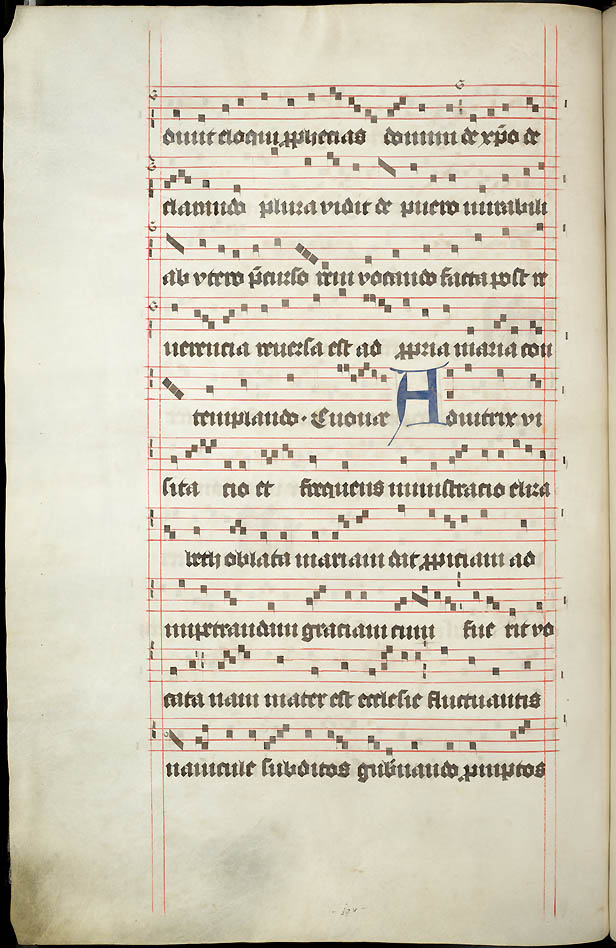 diuit eloqui pphecias domini de xpo de
clarando plura vidit de puero mirabili
ab vtero pcurso rem vocando facta post re
uerencia reuersa est ad ppria maria con
templando. Euouae Adiutrix vi
sita cio et frequens ministracio eliza
beth oblata mariam dat ppiciam ad
impetrandum graciam cum fue rit vo
cata nam mater est ecclesie fluctuantis
nauicule subditos gubnando pmptos